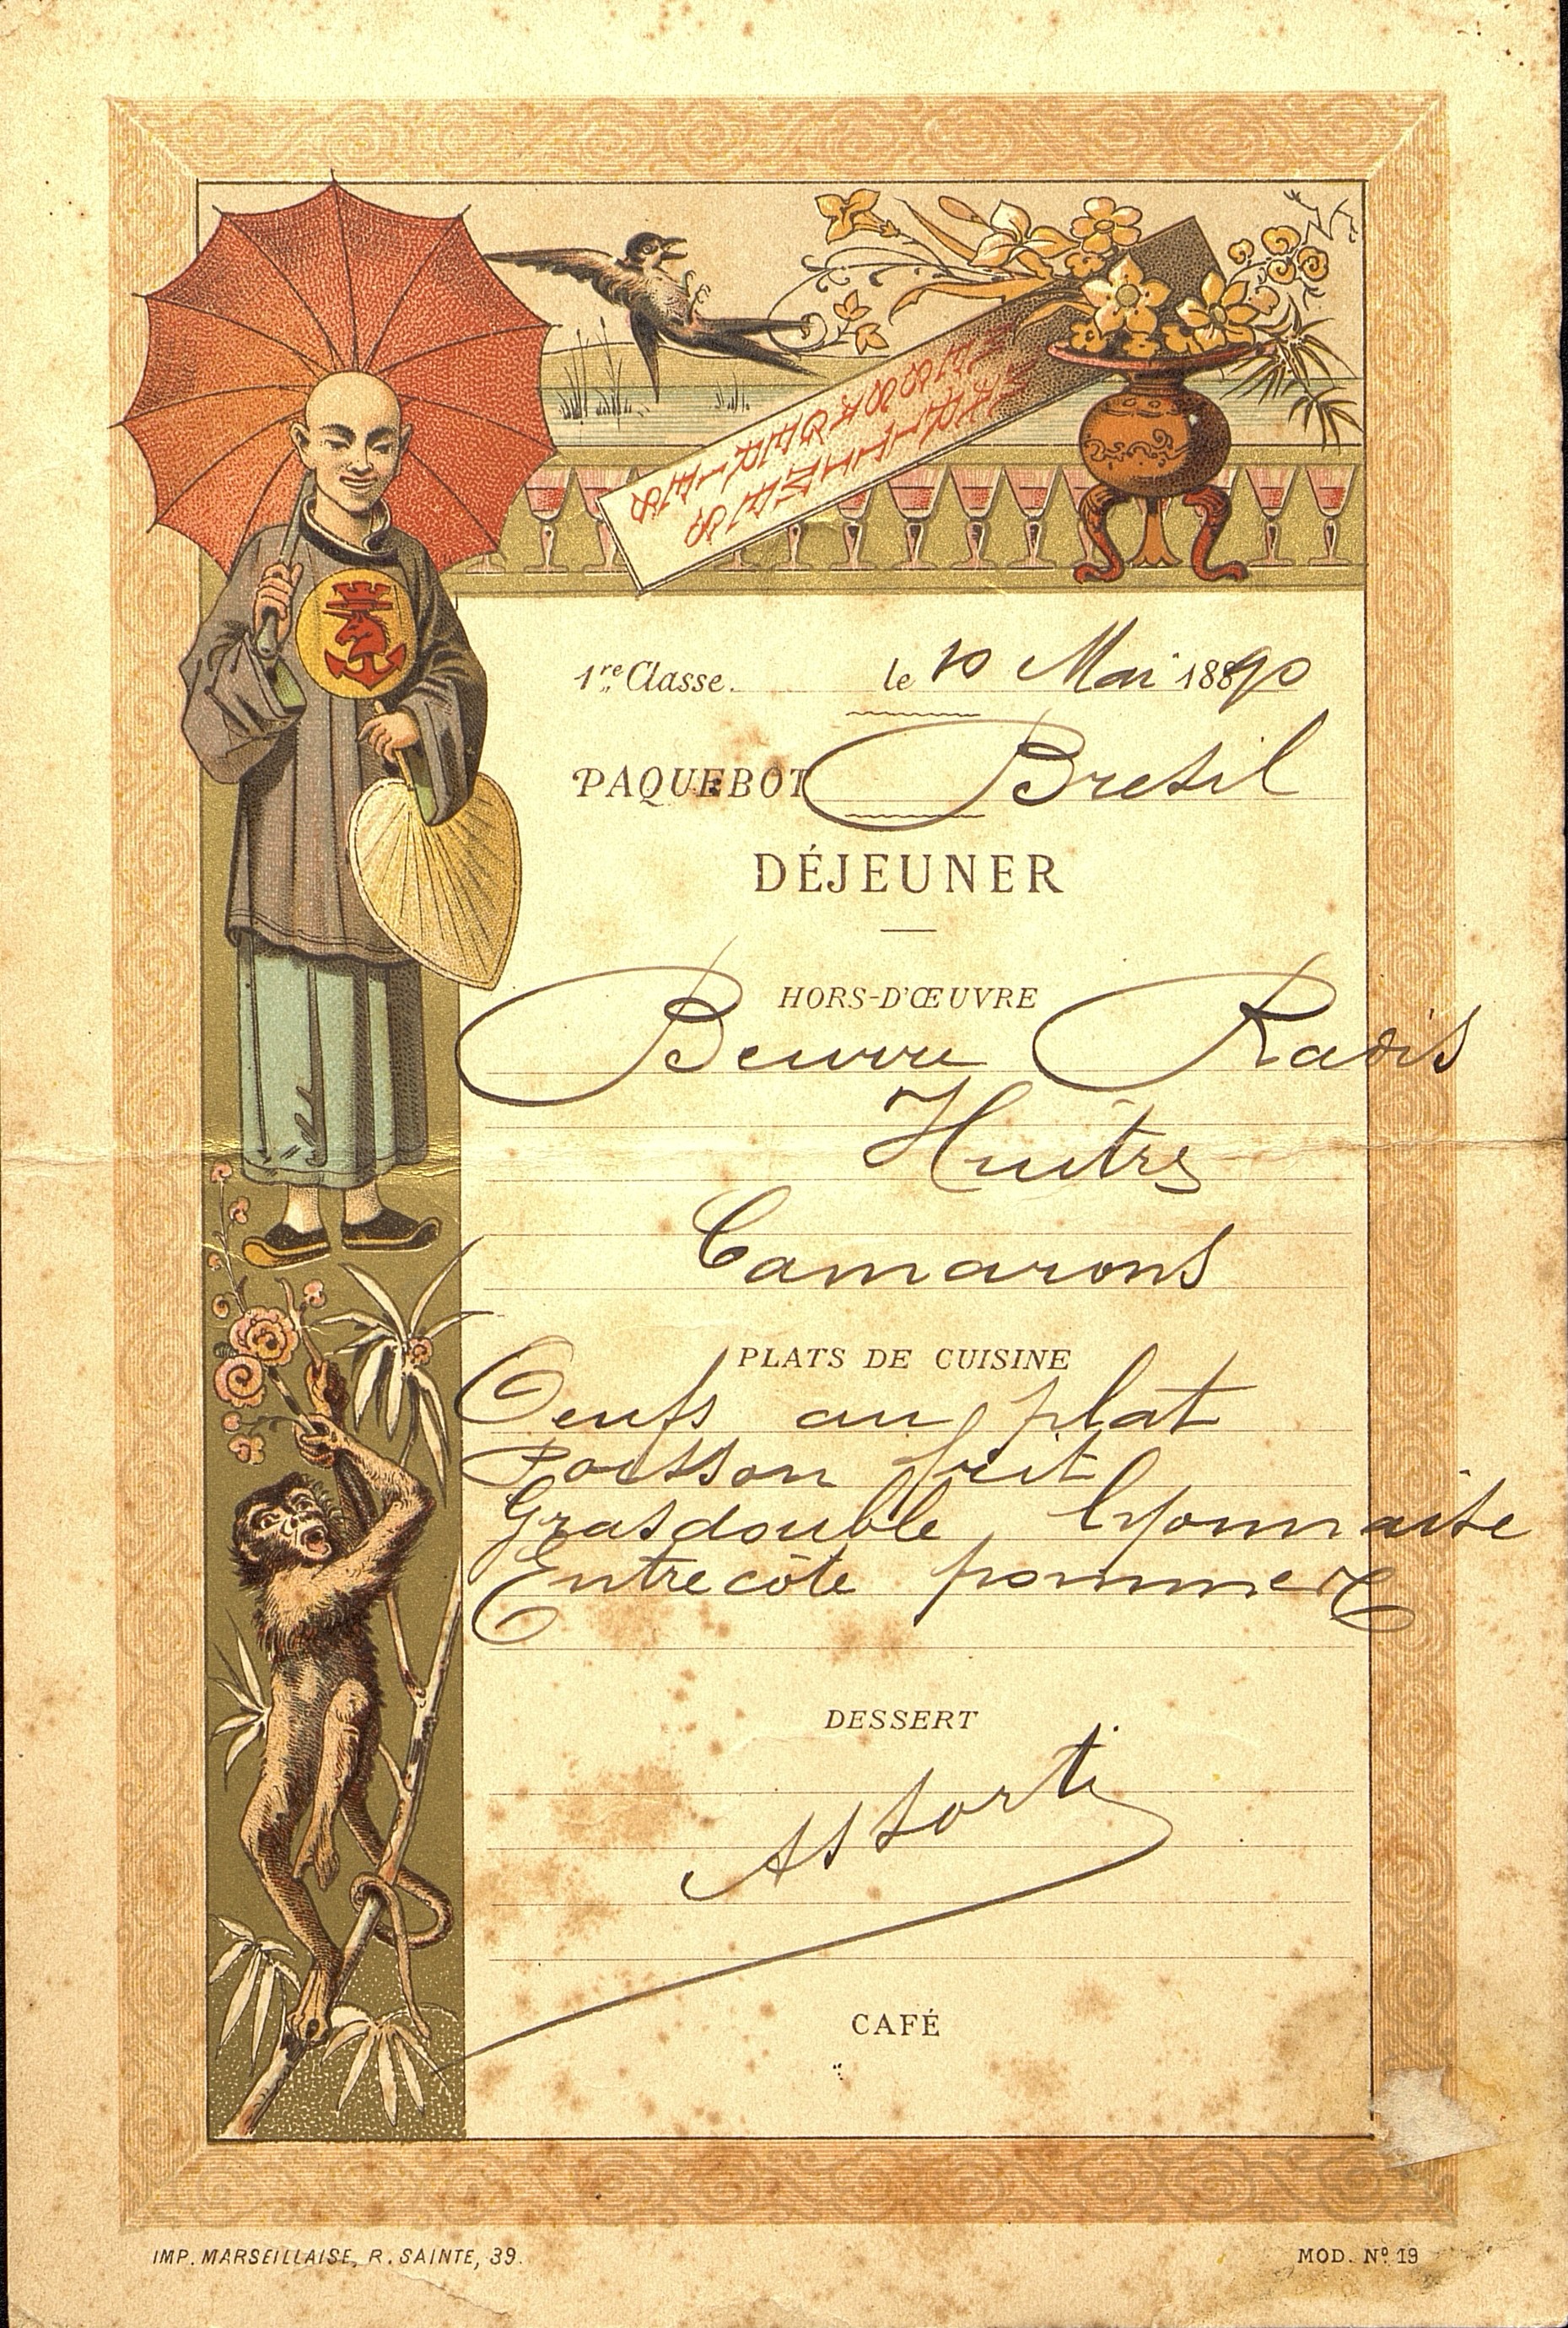 MESSAGERIES
MARITIMES
1re Classe. le 10 Mai 18890
PAQUEBOT Bresil
DÉJEUNER
HORS-D'ŒUVRE
Beurre Radis
Huitres
Camarons
PLATS DE CUISINE
Oeufs au plat
Poisson frit
Grasdouble lyonnaise
Entrecôte pommes
DESSERT
Assorti
CAFÉ
IMP. MARSEILLAISE, R. SAINTE, 39.
MOD. Nº 19